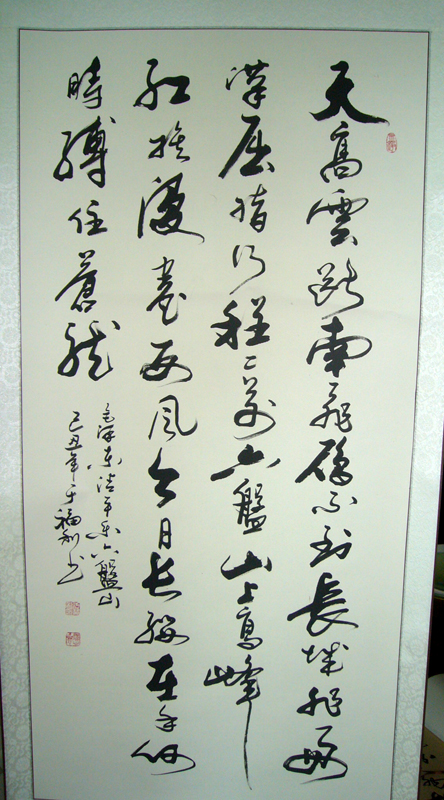 天高雲断南飛雁不到長城非好
漢屈指行程二萬六盤山上高峰
紅旗漫卷西風今日長纓在手何
時縛住蒼龍
毛澤东清平乐六盤山
己丑年于福利书